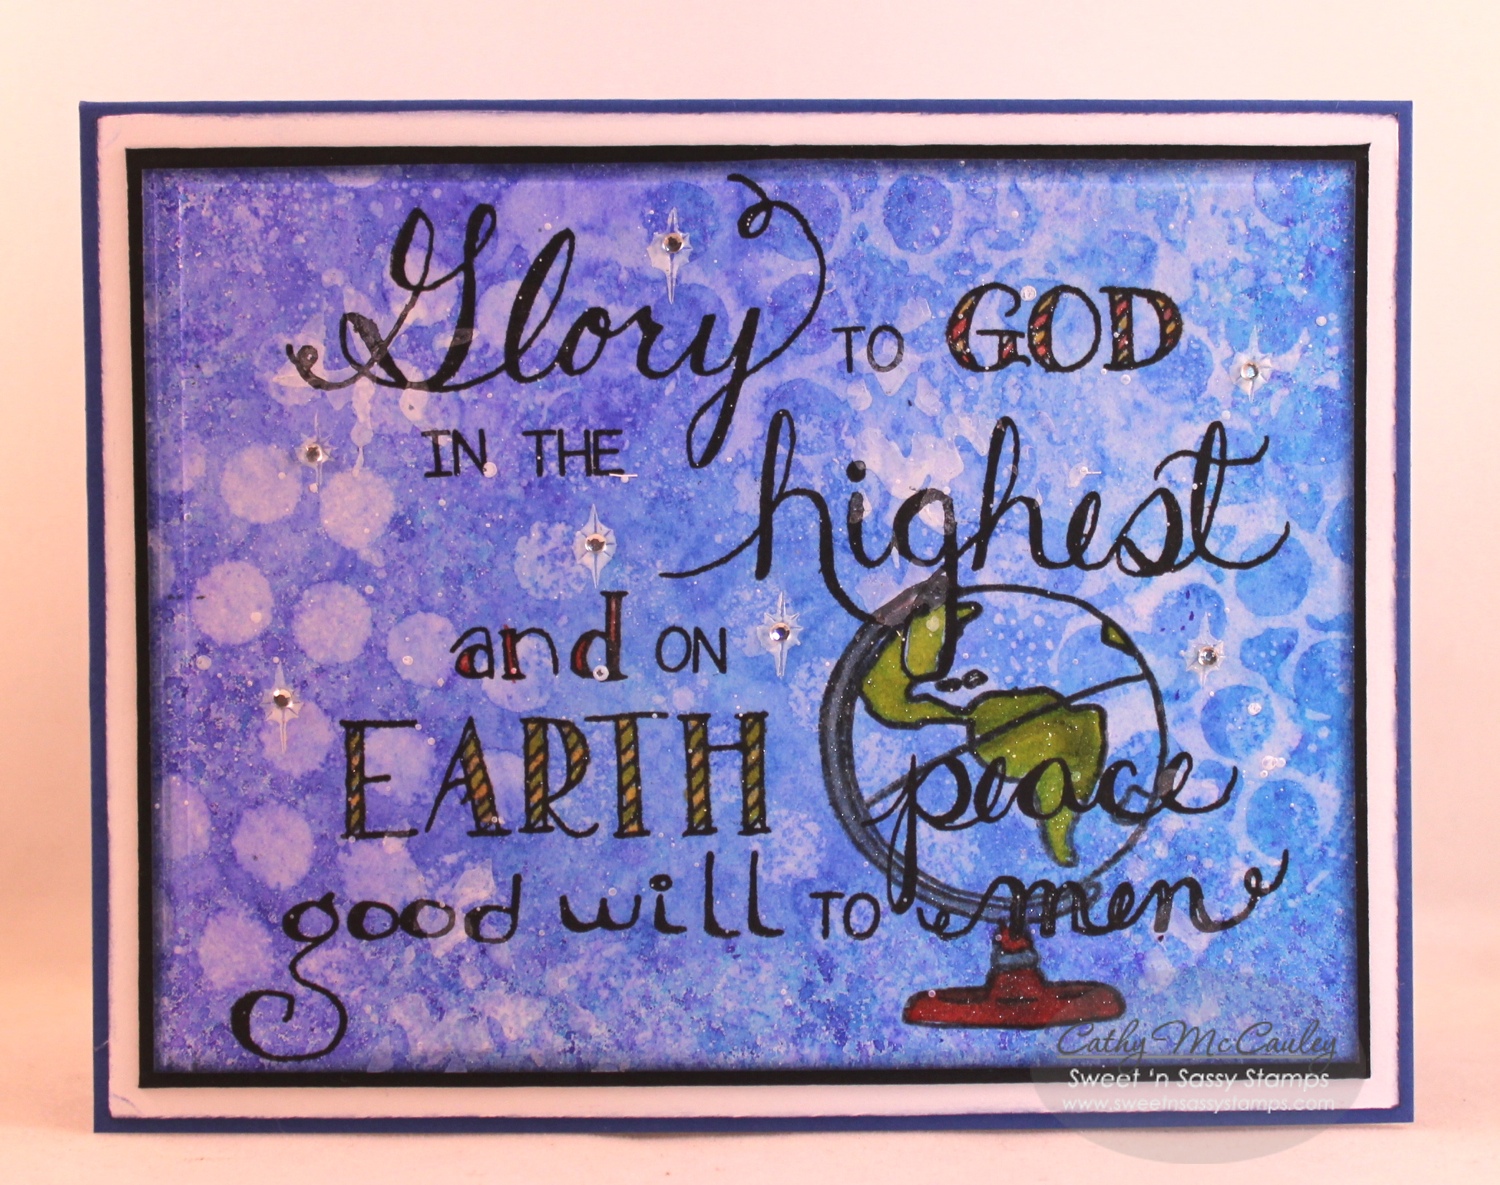 Glory TO GOD
IN THE highest
and ON
EARTH peace
good will TO men
Cathy McCauley
Sweet 'n Sassy Stamps
www.sweetnsassystamps.com